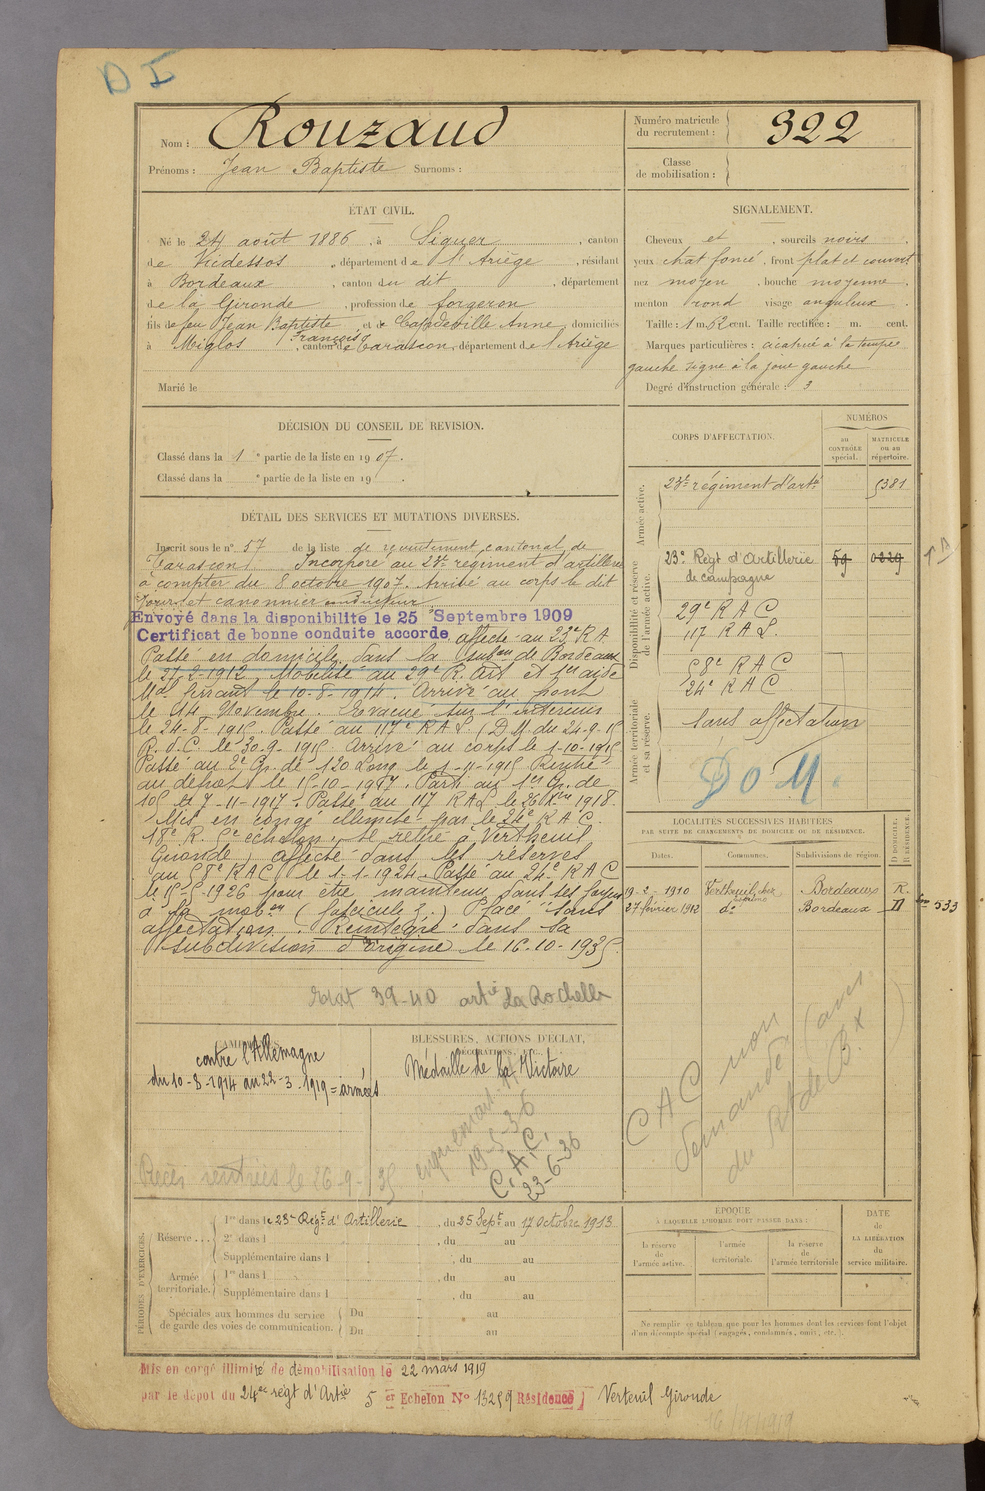 D I
Nom : Rouzaud
Prénoms : Jean Baptiste Surnoms :
Numéro matricule du recrutement : 322
Classe de mobilisation :
ÉTAT CIVIL.
Né le 24 août 1886, à Siguer, canton
de Vicdessos, département de l'Ariège, résidant
à Bordeaux, canton du dit, département
de la Gironde, profession de forgeron
fils de feu Jean Baptiste François et de Capdeville Anne, domiciliés
à Miglos, canton de Tarascon, département de l'Ariège
Marié le
SIGNALEMENT.
Cheveux et, sourcils noirs,
yeux chat foncé, front plat et couvert
nez moyen, bouche moyenne,
menton rond visage anguleux
Taille : 1 m. 62 cent. Taille rectifiée : m. cent.
Marques particulières : cicatrice à la tempe
gauche signe à la joue gauche
Degré d'instruction générale : 3
DÉCISION DU CONSEIL DE REVISION.
Classé dans la 1e partie de la liste en 1907.
Classé dans la e partie de la liste en 19 .
CORPS D'AFFECTATION.
NUMÉROS
au CONTRÔLE spécial.
MATRICULE ou au répertoire.
Armée active.
23e régiment d'artie 5381
Disponibilité et réserve de l'armée active.
23e Regt d'Artillerie de campagne 59 0229
29e R A C
117 R A L.
58e R A C
24e R A C
Armée territoriale et sa réserve.
Sans affectation
D o M.
DÉTAIL DES SERVICES ET MUTATIONS DIVERSES.
Inscrit sous le n° 57 de la liste de recrutement cantonal de
Tarascon. Incorporé au 23e régiment d'artillerie
à compter du 8 octobre 1907. Arrivé au corps le dit
jour et canonnier conducteur
Envoyé dans la disponibilite le 25 Septembre 1909
Certificat de bonne conduite accorde, affecté au 23e R A
Passé en domicile dans la subon de Bordeaux
le 27-2-1912. Mobilisé au 29e R. Art et 1er aide
Mal ferrant le 10-8-1914. Arrivé au front
le 14 Novembre. Evacué sur l'intérieur
le 24-8-1915. Passé au 117e R A L (D M du 24-9-15
R. d. C. le 30-9-1915 Arrivé au corps le 1-10-1915
Passé au 2e Gr. de 120 Long le 1-11-1915 Rentré
au dépot le 15-10-1917. Parti au 1er Gr. de
105 le 7-11-1917. Passé au 117 R A L le 26 Xbre 1918.
Mis en congé illimité par le 24e R A C.
18e R. 5e échelon, se retire à Vertheuil
Gironde, affecté dans les réserves
au 58e R A C le 1-1-1924. Passé au 24e R A C
le 15-5-1926 pour être maintenu dans ses foyers
à la mobon (fascicule 3.) Placé "sans
affectation". Réintégré dans sa
subdivision d'origine le 16-10-1935.
Etat 39-40 artie La Rochelle
LOCALITÉS SUCCESSIVES HABITÉES
PAR SUITE DE CHANGEMENTS DE DOMICILE OU DE RÉSIDENCE.
Dates. Communes. Subdivisions de région. D DOMICILE. R RÉSIDENCE.
19-2-1910 Vertheuil Bordeaux R.
27 février 1912 do Bordeaux D
533
CAMPAGNES.
contre l'Allemagne
du 10-8-1914 au 22-3-1919 = armées
Reçes rentrées le 26-9-35
BLESSURES, ACTIONS D'ÉCLAT,
DÉCORATIONS, ETC.
Médaille de la Victoire
19-5-36
C.A.C.
23-6-36
C A C non
demandé
PÉRIODES D'EXERCICES.
Réserve . . . 1re dans le 23e Régt d'Artillerie, du 25 Sept au 17 octobre 1913
2e dans l , du au
Supplémentaire dans l , du au
Armée territoriale. 1re dans l , du au
Supplémentaire dans l , du au
Spéciales aux hommes du service de garde des voies de communication. Du au
Du au
ÉPOQUE
À LAQUELLE L'HOMME DOIT PASSER DANS :
la réserve de l'armée active.
l'armée territoriale.
la réserve de l'armée territoriale
DATE de LA LIBÉRATION du service militaire.
Ne remplir ce tableau que pour les hommes dont les services font l'objet
d'un décompte spécial (engagés, condamnés, omis, etc.).
Mis en congé illimité de démobilisation le 22 mars 1919
par le dépot du 24e regt d'Artie 5 er Echelon N° 13259 Résidence Verteuil Gironde